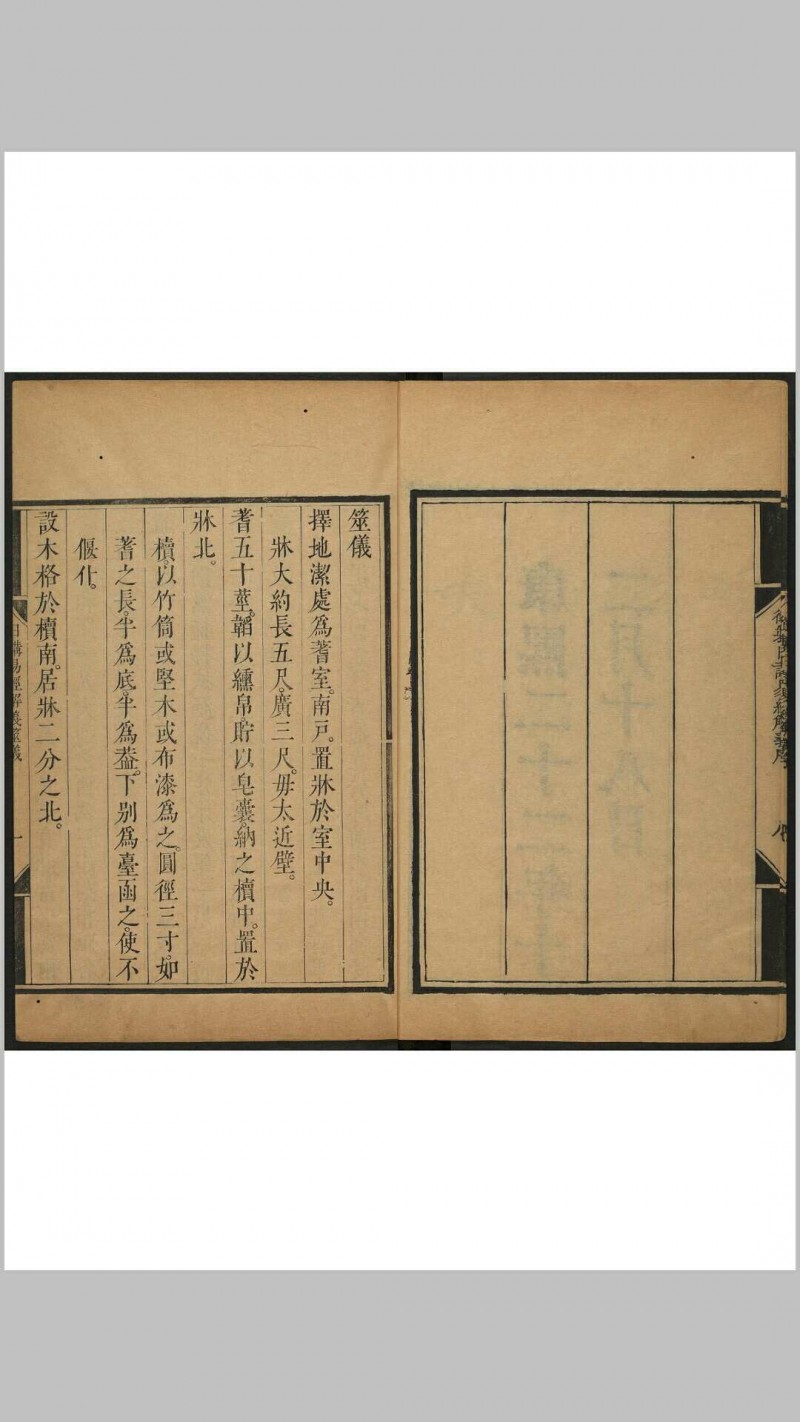 筮儀
擇地潔處爲蓍室。南戶。置牀於室中央。
牀大約長五尺。廣三尺。毋太近壁。
蓍五十莖。韜以纁帛。貯以皂囊。納之櫝中。置於
牀北。
櫝。以竹筒或堅木或布漆爲之。圓徑三寸。如
蓍之長。半爲底。半爲葢。下別爲臺函之。使不
偃仆。
設木格於櫝南。居牀二分之北。
日講易經解義筮儀
一